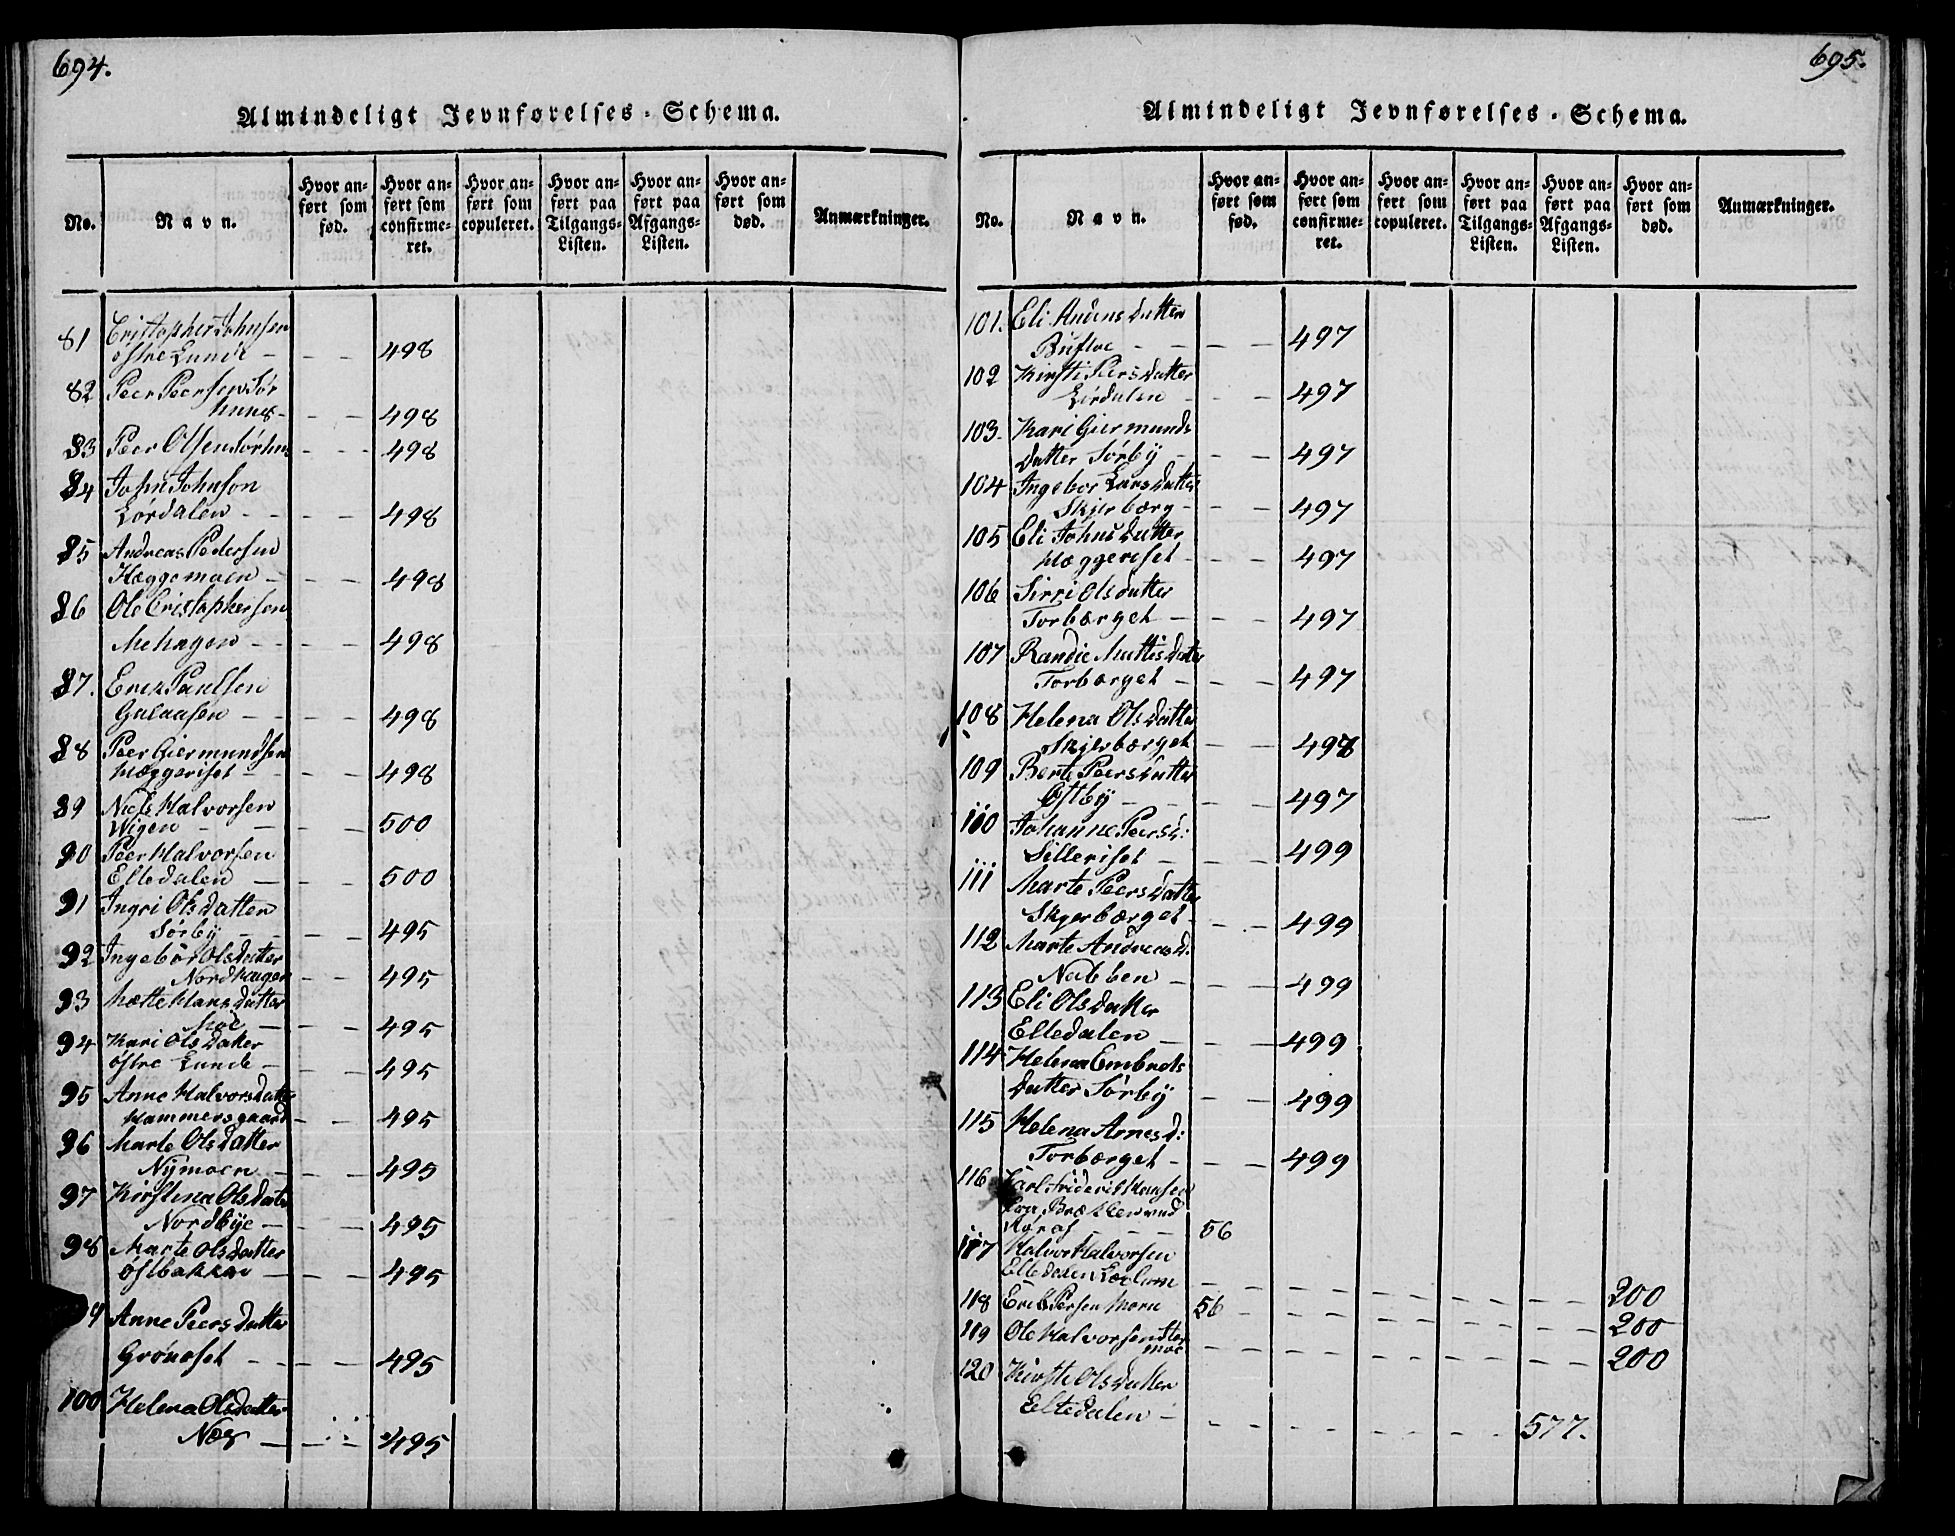 694.
Almindeligt Jevnførelses-Schema.
No. Navn. Hvor anført som fød. Hvor anført som confirmeret. Hvor anført som copuleret. Hvor anført paa Tilgangs-Listen. Hvor anført paa Afgangs-Listen. Hvor anført som død. Anmærkninger.
81 Cristopher Johnsen
østre Lunde - - - 498
82 Peer Peersen Sør
huus - - - 498
83 Peer Olsen Sørhus - - - 498
84 John Johnson
Lørdalen - - - 498
85 Andreas Pedersen
Hæggemoen - - - 498
86 Ole Cristophersen
Mehagen - - - 498
87. Erik Paulsen
Galaasen - - - 498
88 Peer Giermundsen
Hæggeriset - - - 498
89 Niels Halvorsen
Wigen - - - 500
90 Peer Halvorsen
Eltedalen - - - 500
91 Ingri Olsdatter
Sørby - - - 495
92 Ingebor Olsdatter
Nordhaugen - - 495
93 Mette Hansdatter
Moe - - - 495
94 Kari Olsdatter
østre Lunde - - - 495
95 Anne Halvorsdatter
Hammersgaard - - 495
96 Marte Olsdatter
Nÿmoen - - - 495
97 Kirstina Olsdatter
Nordbÿe - - - 495
98 Marte Olsdatter
Østbakken - - - 495
99 Anne Peersdatter
Grønoset - - - 495
100 Helena Olsdatter
Næs - - - 495
695.
Almindeligt Jevnførelses-Schema.
No. Navn. Hvor anført som fød. Hvor anført som confirmeret. Hvor anført som copuleret. Hvor anført paa Tilgangs-Listen. Hvor anført paa Afgangs-Listen. Hvor anført som død. Anmærkninger.
101. Eli Andersdatter
Bufloe - - - 497
102 Kirsti Peersdatter
Lørdalen - - - 497
103. Kari Giermunds
datter Sørbÿ - - - 497
104 Ingebor Larsdatter
Skjerbærg - - - 497
105 Eli Johnsdatter
Hæggeriset - - - 497
106 Sirri Olsdatter
Torbærget - - - 497
107 Randie Mattisdatter
Torbærget - - - 497
108 Helena Olsdatter
Skjerbærget - - 498
109 Berte Peersdatter
Østbÿ - - - 497
110 Johanne Peersd:
Silleriset - - - 499
111 Marte Peersdatter
Skjerbærget - - - 499
112 Marte Andreasd:
Nabben - - - 499
113 Eli Olsdatter
Eltedalen - - - 499
114 Helena Embrets
datter Sørbÿ - - 499
115 Helena Arnesd:
Torbærget - - - 499
116 Carl Friderik Hansen
fra Brækken ved
Røraas - - 56
117 Halvor Halvorsen
Eltedalen - - - - - - 200
118 Erik Persen Moren 56 - - - - - 200
119 Ole Halvorsen
moe - - - - - - 200
120 Kirste Olsdatter
Eltedalen - - - - - 577.